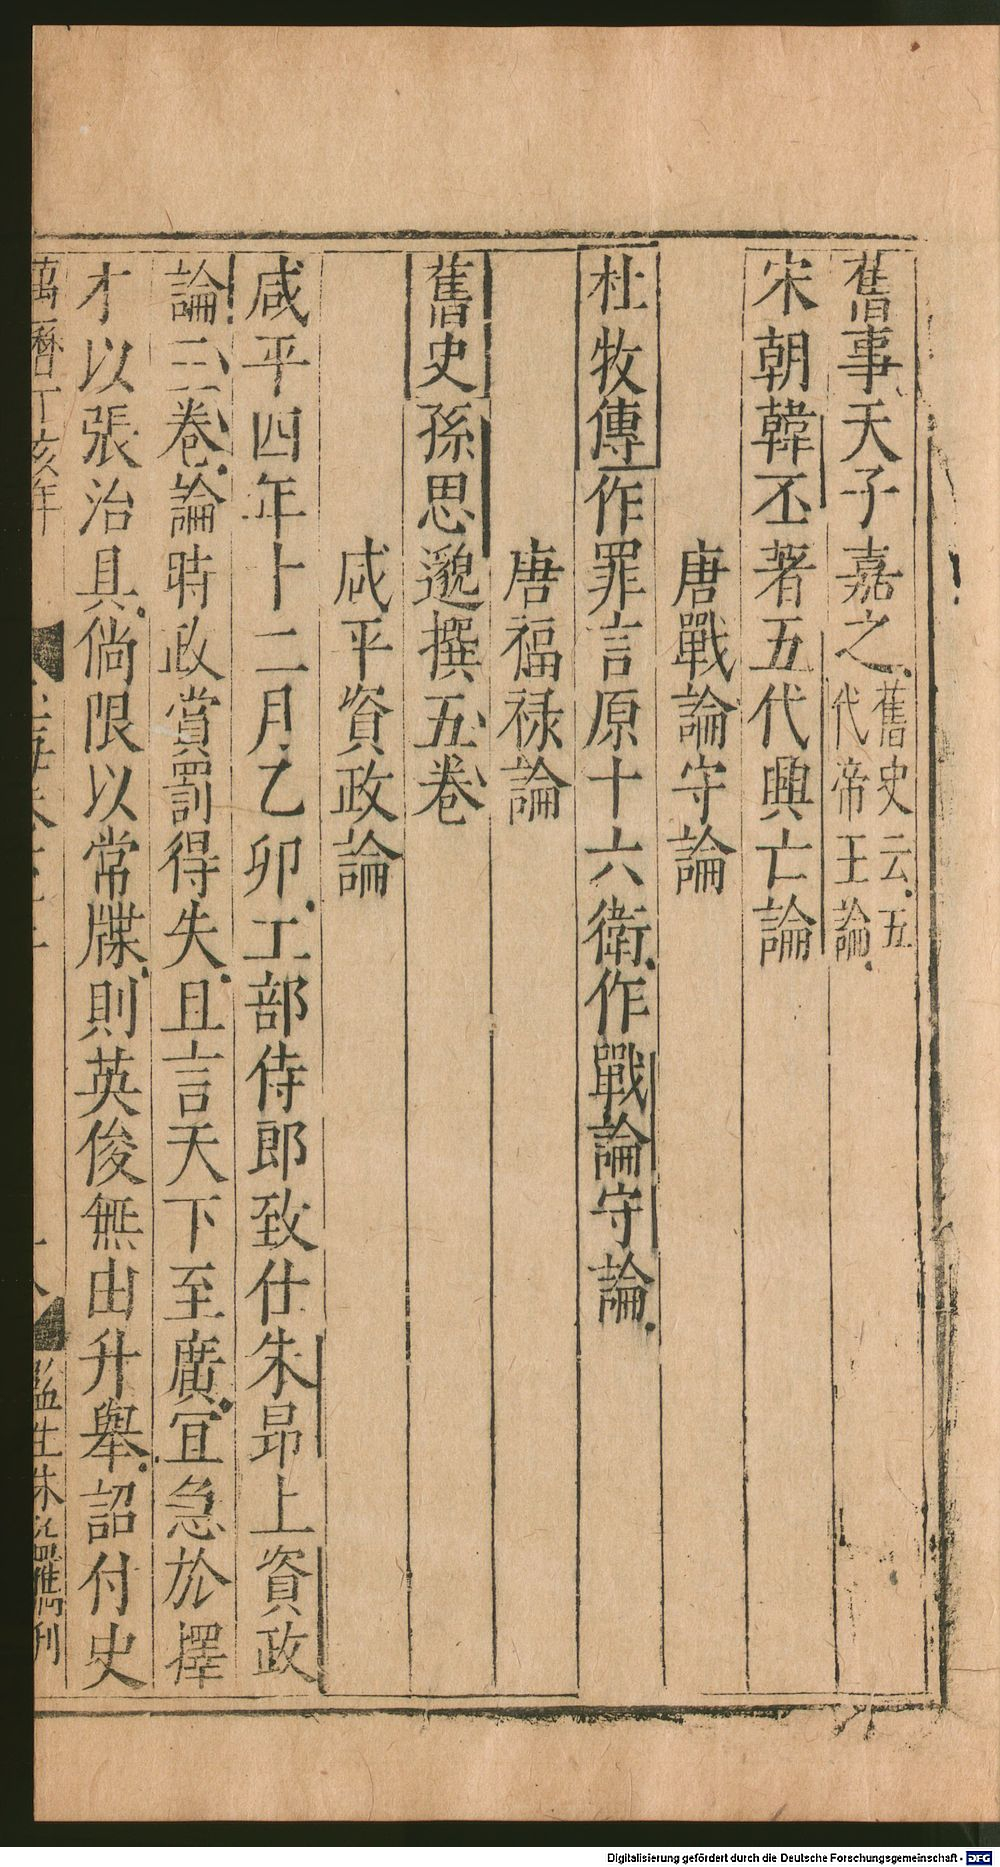 舊事天子嘉之舊史云五代帝王論
宋朝韓丕著五代興亡論
唐戰論守論
杜牧傳作罪言原十六衛作戰論守論
唐福禄論
舊史孫思邈撰五卷
咸平資政論
咸平四年十二月乙卯工部侍郎致仕朱昂上資政
論三卷論時政賞罰得失且言天下至廣宜急於擇
才以張治具倘限以常牒則英俊無由升舉詔付史
萬曆丁亥年
監生朱 刊
Digitalisierung gefördert durch die Deutsche Forschungsgemeinschaft - DFG